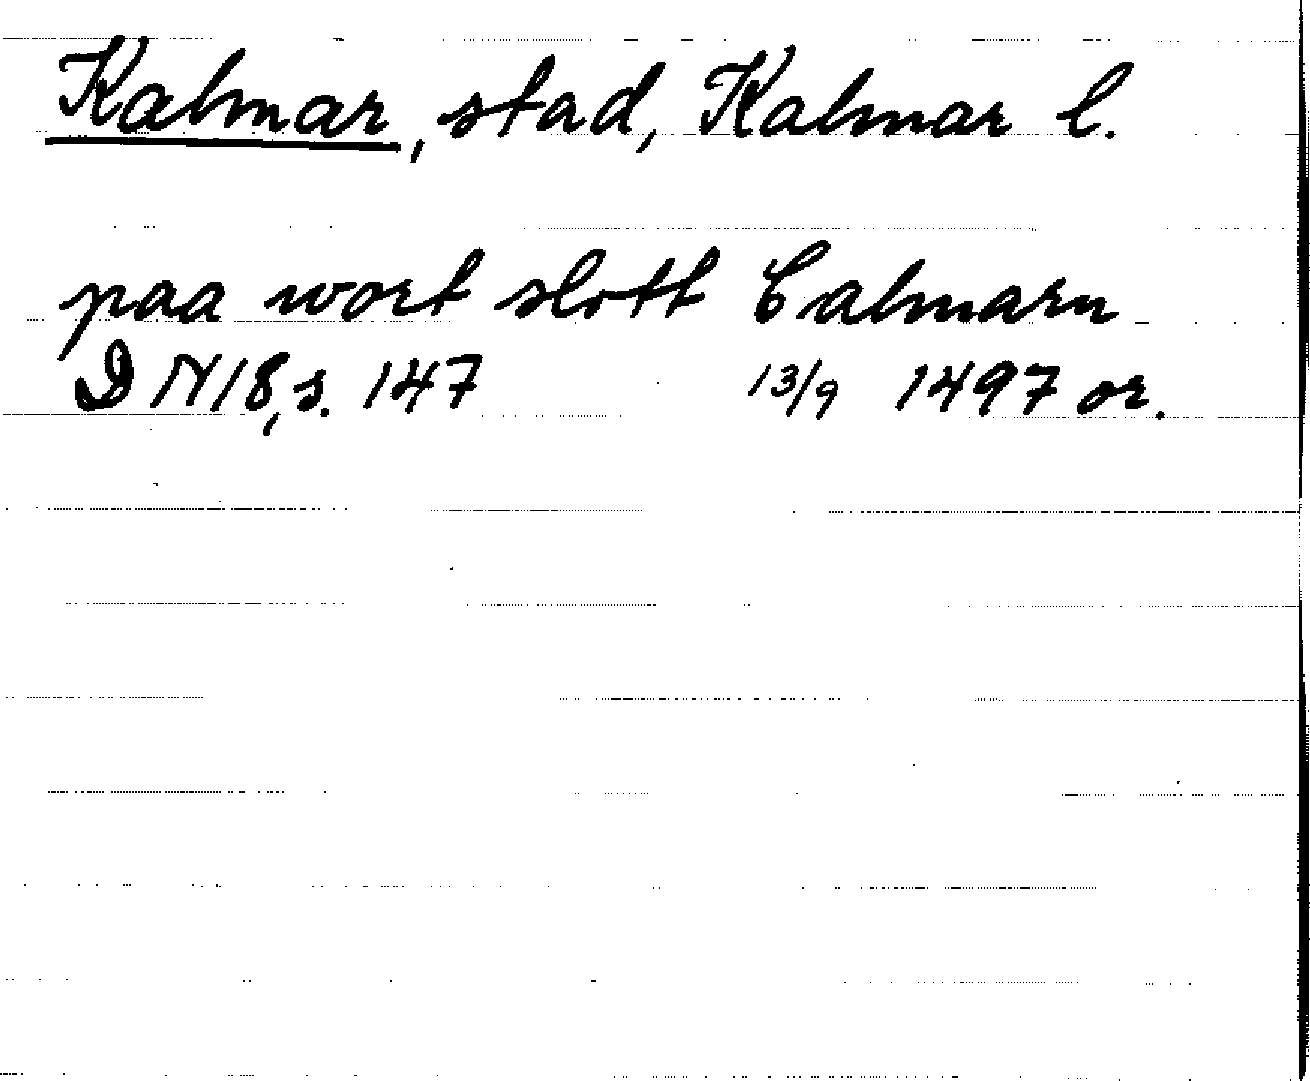 Kalmar, stad, Kalmar l.
paa wort slott Calmarn
DN18, s. 147 13/9 1497 or.